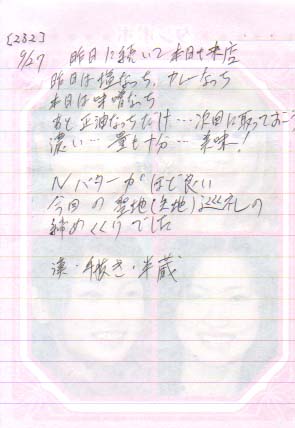 [232]
9/27 昨日に続いて本日も来店
昨日は塩なっち、カレーなっち
本日は味噌なっち
あと正油なっちだけ…次回に取っておこう
濃い…量も十分…美味!
Nバターがほど良い
今回の聖地(失地)巡礼の
締めくくりでした
漢・手抜き・半蔵